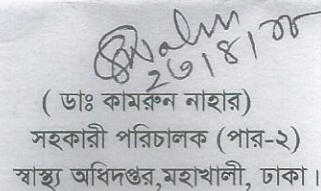 ২৩|৪|০৮
( ডাঃ কামরুন নাহার)
সহকারী পরিচালক (পার-২)
স্বাস্থ্য অধিদপ্তর,মহাখালী, ঢাকা।